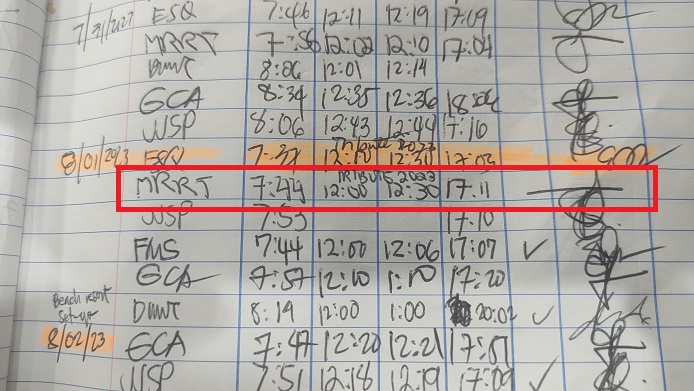 7/31/2023 ESQ 7:46 12:11 12:19 17:09
MRRT 7:56 12:02 12:10 17:04
DMNT 8:06 12:01 12:14
GCA 8:34 12:35 12:36
WSP 8:06 12:43 12:44 17:16
8/01/2023 ESQ 7:37 17:03
MRRT 7:44 12:00 12:30 17:11
WSP 7:53 17:10
FMS 7:44 12:00 12:06 17:07 ✓
GCA 7:57 12:10 1:10 17:20
Beach resort
set-up
DMNT 8:19 12:00 1:00 20:02 ✓
8/02/23 GCA 7:47 12:20 12:21
WSP 7:51 12:18 12:19 17:09 ✓